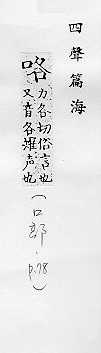 四聲篇海
咯力各切俗言也
又音各雉声也
(口部,p.78)